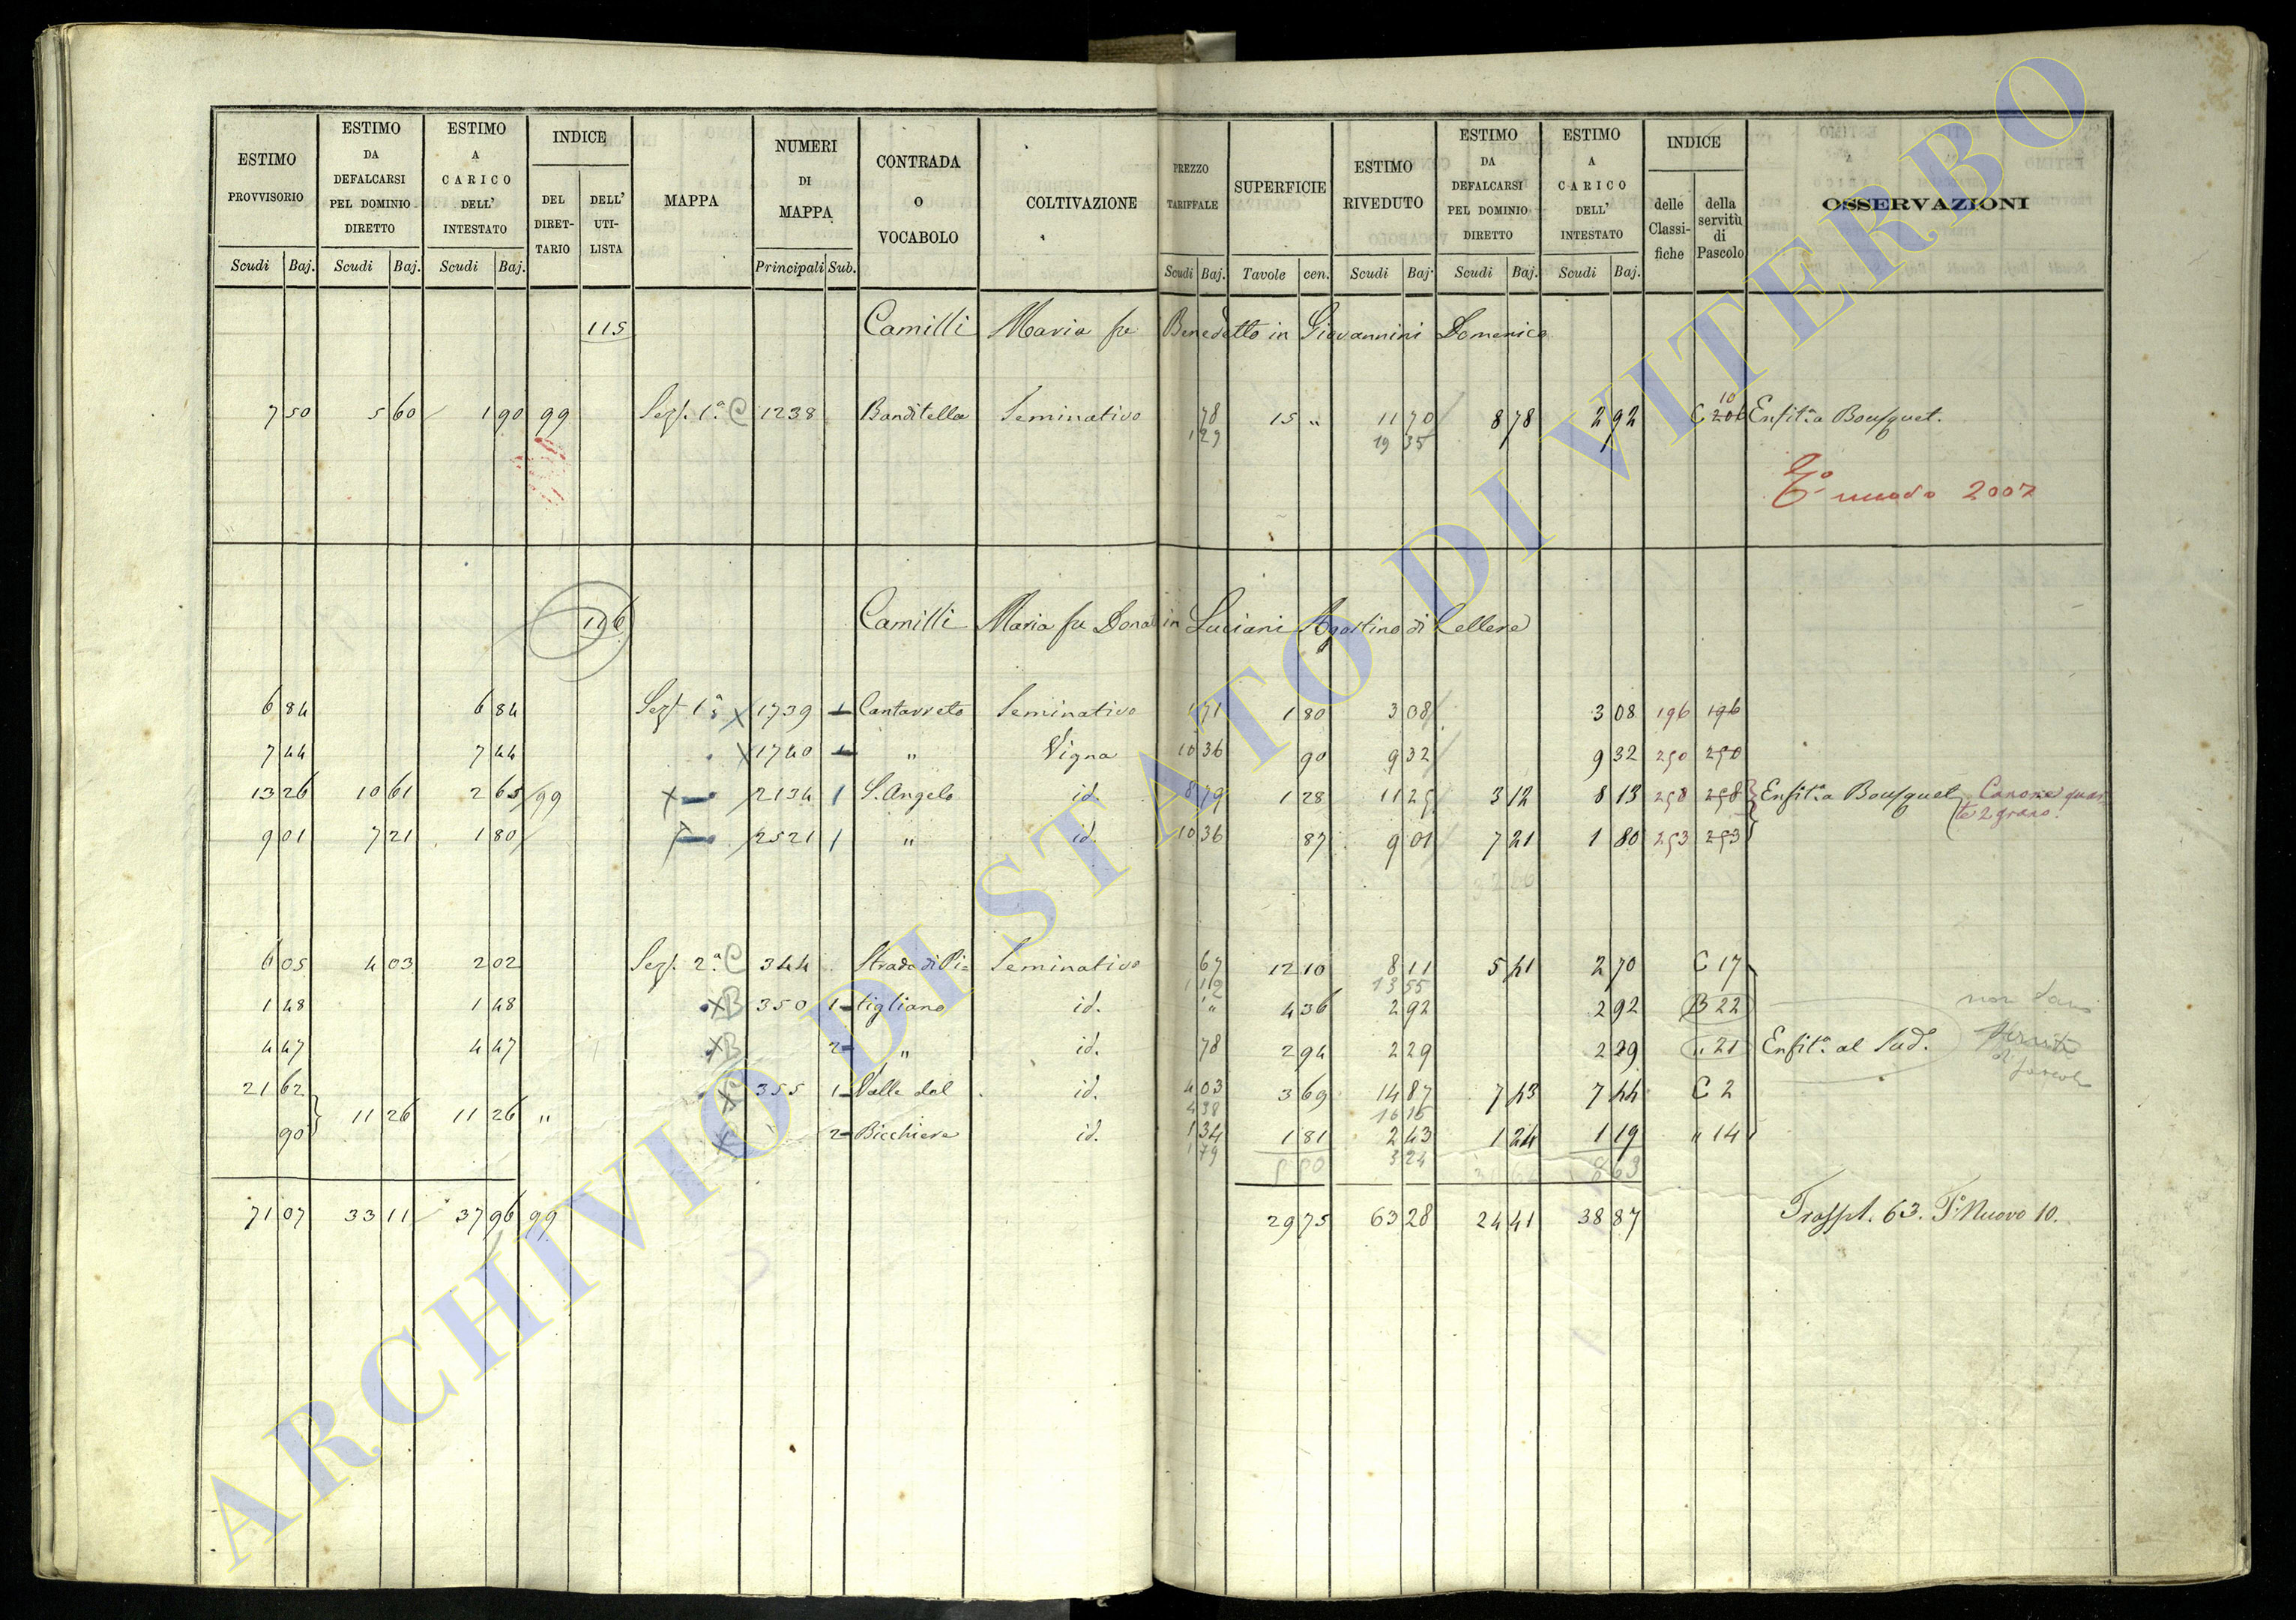 ESTIMO PROVVISORIO | ESTIMO DA DEFALCARSI PEL DOMINIO DIRETTO | ESTIMO A CARICO DELL' INTESTATO | INDICE | MAPPA | NUMERI DI MAPPA | CONTRADA O VOCABOLO | COLTIVAZIONE | PREZZO TARIFFALE | SUPERFICIE | ESTIMO RIVEDUTO | ESTIMO DA DEFALCARSI PEL DOMINIO DIRETTO | ESTIMO A CARICO DELL' INTESTATO | INDICE | OSSERVAZIONI
DEL DIRETTARIO | DELL' UTILISTA | delle Classifiche | della servitù di Pascolo
Scudi | Baj. | Scudi | Baj. | Scudi | Baj. | Principali | Sub. | Scudi | Baj. | Tavole | cen. | Scudi | Baj. | Scudi | Baj. | Scudi | Baj.
115 Camilli Maria fu Benedetto in Giovannini Domenico
7 50 | 5 60 | 1 90 | 99 | Sez. 1ª C | 1238 | Banditella | Seminativo | 78 | 15 " | 11 70 | 8 78 | 2 92 | C 206 10 | Enfit.a Bousquet.
1 29 | 19 35
T.o nuovo 2007
116 Camilli Maria fu Dona in Luciani Agostino di Cellere
6 84 | 6 84 | Sez. 1ª | 1739 | 1 | Cantarreto | Seminativo | 1 71 | 1 80 | 3 08 | 3 08 | 196 | 196
7 44 | 7 44 | 1740 | 1 | " | Vigna | 10 36 | 90 | 9 32 | 9 32 | 250 | 250
13 26 | 10 61 | 2 65 | 99 | 2134 | 1 | S. Angelo | id. | 8 79 | 1 28 | 11 25 | 3 12 | 8 13 | 258 | 258 | Enfit.a Bousquet Canone quar
te 2 grano.
9 01 | 7 21 | 1 80 | 2521 | 1 | " | id. | 10 36 | 87 | 9 01 | 7 21 | 1 80 | 253 | 253
6 05 | 4 03 | 2 02 | Sez. 2ª C | 344 | Strada di Pi= | Seminativo | 67 | 12 10 | 8 11 | 5 41 | 2 70 | C 17
1 12 | 13 55
1 48 | 1 48 | B | 350 | 1 | tigliano | id. | " | 4 36 | 2 92 | 2 92 | B 22
4 47 | 4 47 | B | 2 | " | id. | 78 | 2 94 | 2 29 | 2 29 | " 21 | Enfit.a al Sud.o
21 62 | 11 26 | 11 26 | " | C | 355 | 1 | Valle del | id. | 4 03 | 3 69 | 14 87 | 7 43 | 7 44 | C 2
4 38 | 16 16
90 | 2 | Bicchiere | id. | 1 34 | 1 81 | 2 43 | 1 24 | 1 19 | " 14
1 79 | 3 24 | 8 63
71 07 | 33 11 | 37 96 | 99 | 29 75 | 63 28 | 24 41 | 38 87 | Trasp.t. 63. T.o Nuovo 10.
ARCHIVIO DI STATO DI VITERBO